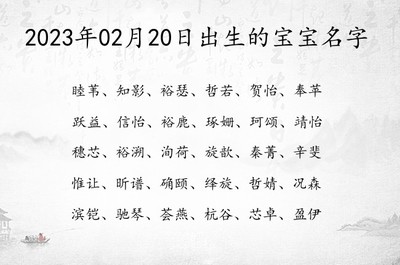 2023年02月20日出生的宝宝名字
睦苇、知影、裕瑟、哲若、贺怡、奉苹
跃益、信怡、裕鹿、琢姗、珂颂、靖怡
穗芯、裕溯、洵荷、旋歆、秦菁、辛斐
惟让、昕谱、确颐、绎旋、哲婧、况森
滨铠、驰琴、荟燕、杭谷、芯卓、盈伊